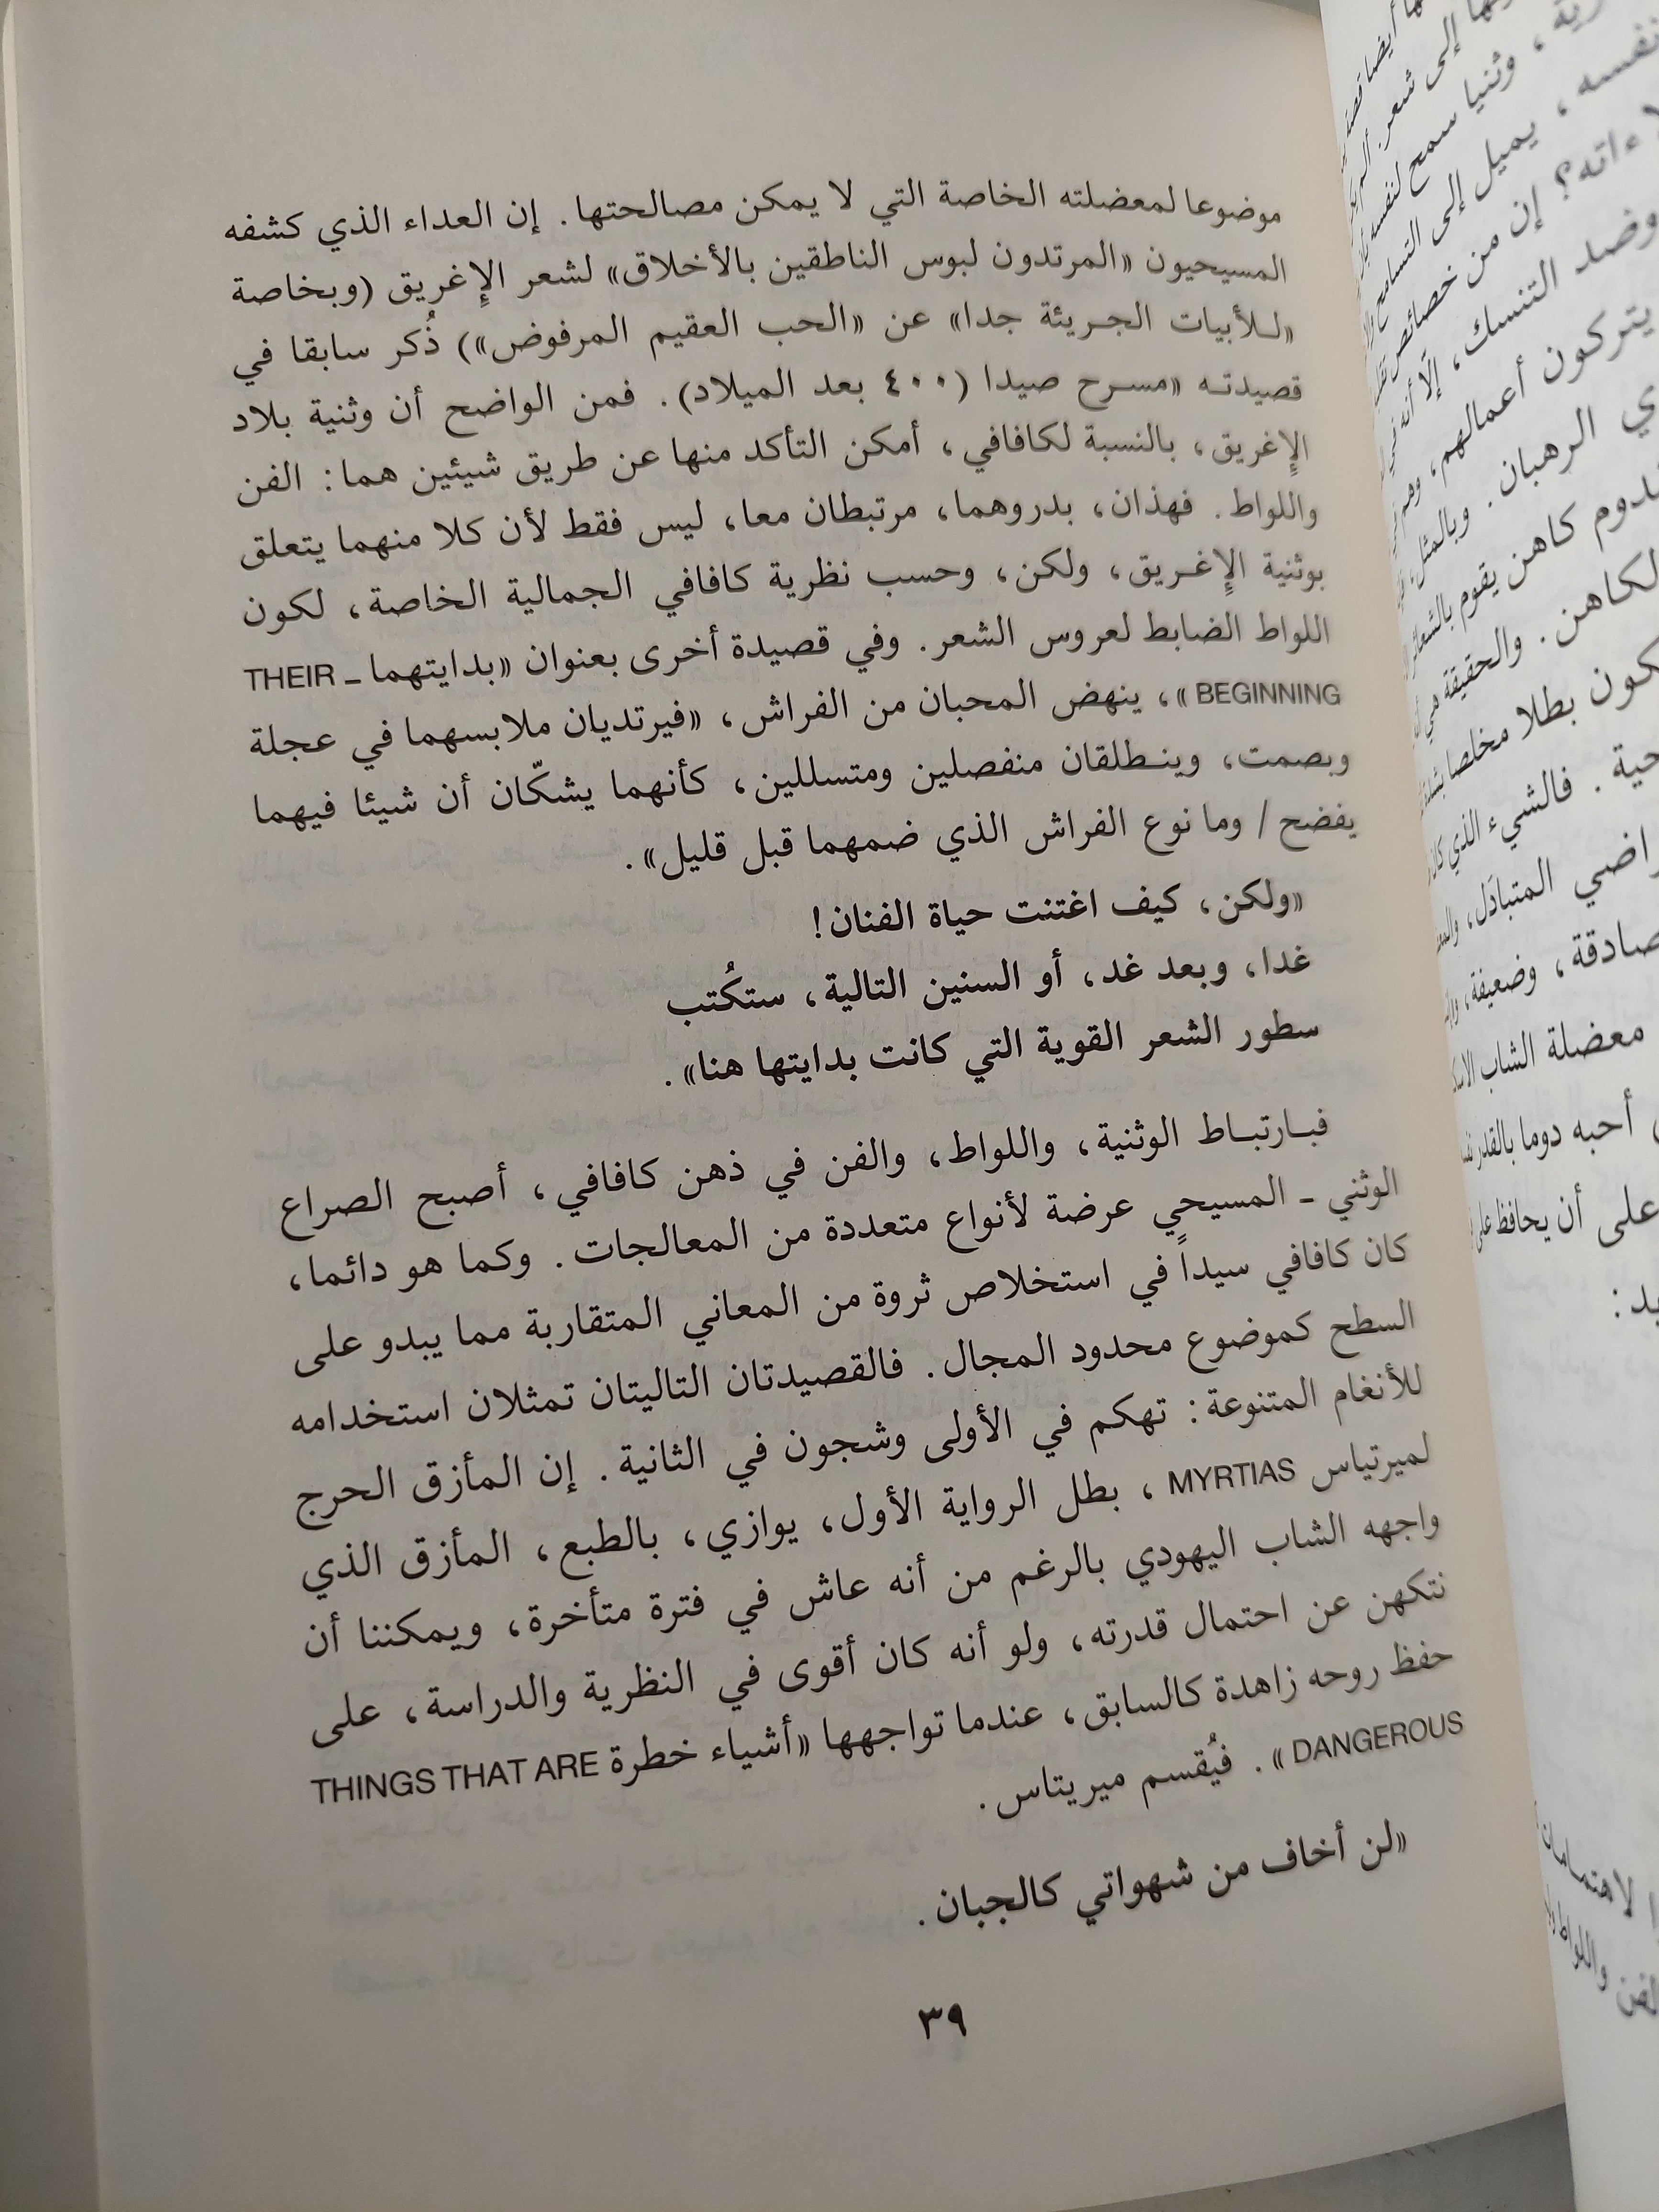 موضوعا لمعضلته الخاصة التي لا يمكن مصالحتها. إن العداء الذي كشفه
المسيحيون «المرتدون لبوس الناطقين بالأخلاق» لشعر الإغريق (وبخاصة
«للأبيات الجريئة جدا» عن «الحب العقيم المرفوض») ذُكر سابقا في
قصيدته «مسرح صيدا (٤٠٠ بعد الميلاد). فمن الواضح أن وثنية بلاد
الإغريق، بالنسبة لكافافي، أمكن التأكد منها عن طريق شيئين هما: الفن
واللواط. فهذان، بدروهما، مرتبطان معا، ليس فقط لأن كلا منهما يتعلق
بوثنية الإغريق، ولكن، وحسب نظرية كافافي الجمالية الخاصة، لكون
اللواط الضابط لعروس الشعر. وفي قصيدة أخرى بعنوان «بدايتهما ـ THEIR
BEGINNING»، ينهض المحبان من الفراش، «فيرتديان ملابسهما في عجلة
وبصمت، وينطلقان منفصلين ومتسللين، كأنهما يشكّان أن شيئا فيهما
يفضح / وما نوع الفراش الذي ضمهما قبل قليل».
«ولكن، كيف اغتنت حياة الفنان!
غدا، وبعد غد، أو السنين التالية، ستكُتب
سطور الشعر القوية التي كانت بدايتها هنا».
فبارتباط الوثنية، واللواط، والفن في ذهن كافافي، أصبح الصراع
الوثني ـ المسيحي عرضة لأنواع متعددة من المعالجات. وكما هو دائما،
كان كافافي سيداً في استخلاص ثروة من المعاني المتقاربة مما يبدو على
السطح كموضوع محدود المجال. فالقصيدتان التاليتان تمثلان استخدامه
للأنغام المتنوعة: تهكم في الأولى وشجون في الثانية. إن المأزق الحرج
لميرتياس MYRTIAS، بطل الرواية الأول، يوازي، بالطبع، المأزق الذي
واجهه الشاب اليهودي بالرغم من أنه عاش في فترة متأخرة، ويمكننا أن
نتكهن عن احتمال قدرته، ولو أنه كان أقوى في النظرية والدراسة، على
حفظ روحه زاهدة كالسابق، عندما تواجهها «أشياء خطرة THINGS THAT ARE
DANGEROUS». فيُقسم ميريتاس.
«لن أخاف من شهواتي كالجبان.
٣٩